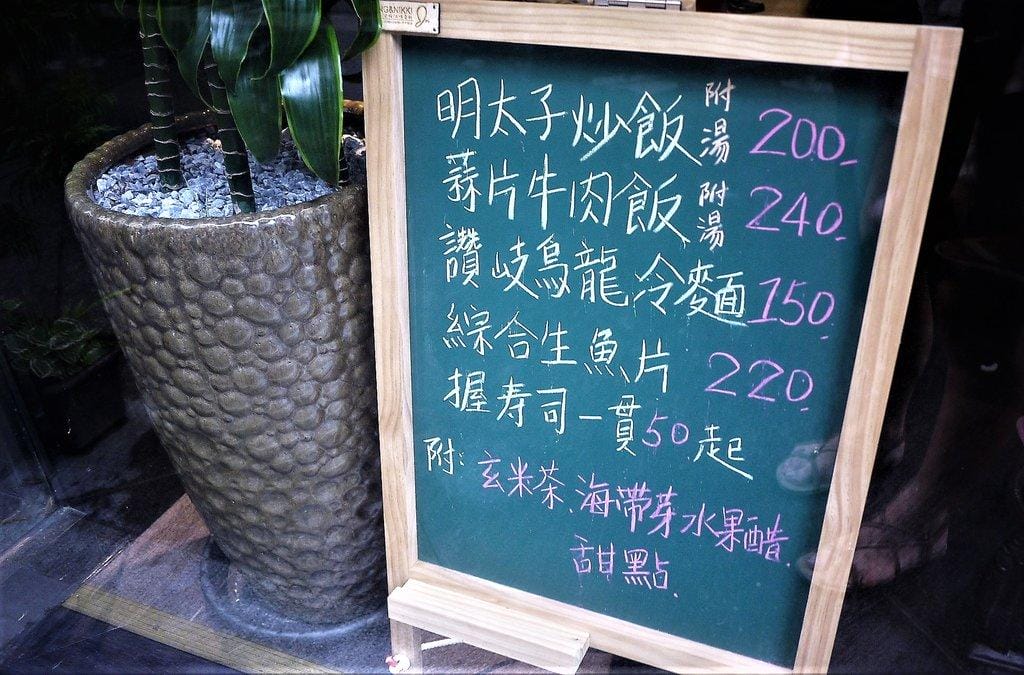 NG&NIKKI
明太子炒飯附湯 200.
蒜片牛肉飯附湯 240.
讚岐烏龍冷麵 150.
綜合生魚片 220.
握寿司一貫50起
附:玄米茶.海帶芽水果醋.
甜點.